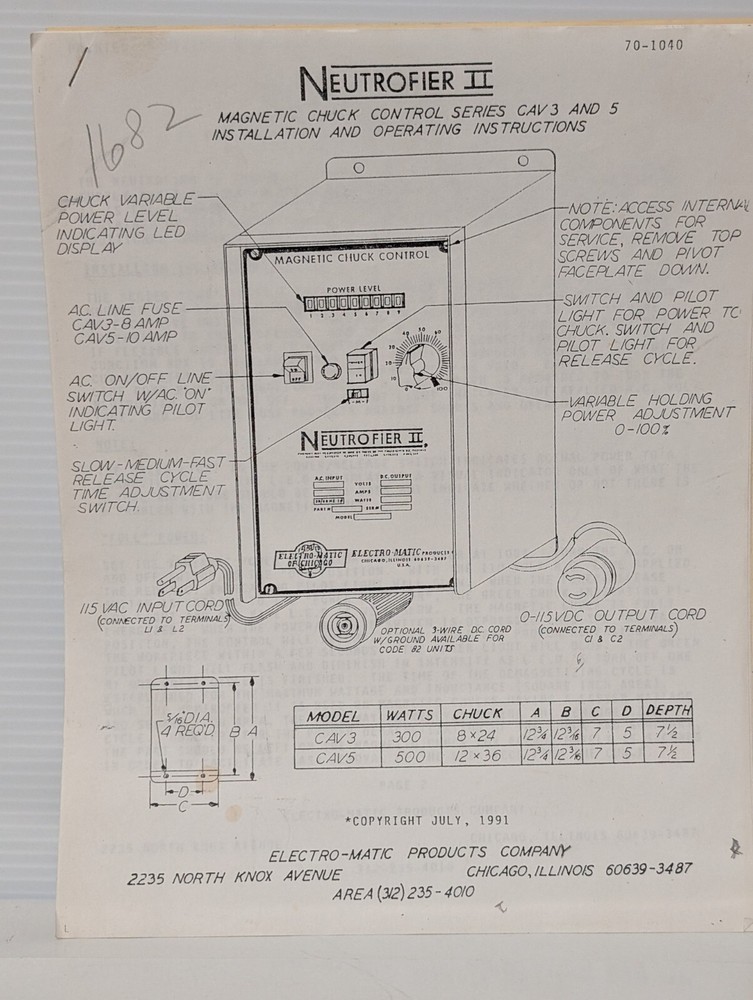 70-1040
1682
NEUTROFIER II
MAGNETIC CHUCK CONTROL SERIES CAV3 AND 5
INSTALLATION AND OPERATING INSTRUCTIONS
CHUCK VARIABLE
POWER LEVEL
INDICATING LED
DISPLAY
A.C. LINE FUSE
CAV3-8 AMP
CAV5-10 AMP
A.C. ON/OFF LINE
SWITCH W/A.C. "ON"
INDICATING PILOT
LIGHT.
SLOW-MEDIUM-FAST
RELEASE CYCLE
TIME ADJUSTMENT
SWITCH.
NOTE: ACCESS INTERNAL
COMPONENTS FOR
SERVICE, REMOVE TOP
SCREWS AND PIVOT
FACEPLATE DOWN.
SWITCH AND PILOT
LIGHT FOR POWER TO
CHUCK. SWITCH AND
PILOT LIGHT FOR
RELEASE CYCLE.
VARIABLE HOLDING
POWER ADJUSTMENT
0-100%
MAGNETIC CHUCK CONTROL
POWER LEVEL
1 2 3 4 5 6 7 8 9
OFF
S-M-F
0 10 20 30 40 50 60 100
NEUTROFIER II
A.C. INPUT D.C. OUTPUT
VOLTS
AMPS
WATTS
PART# SER#
MODEL
ELECTRO-MATIC
OF CHICAGO
ELECTRO-MATIC PRODUCTS
CHICAGO, ILLINOIS 60639-3487
U.S.A.
115 VAC INPUT CORD
(CONNECTED TO TERMINALS)
L1 & L2
OPTIONAL 3-WIRE D.C. CORD
W/GROUND AVAILABLE FOR
CODE 82 UNITS
0-115VDC OUTPUT CORD
(CONNECTED TO TERMINALS)
C1 & C2
5/16" DIA.
4 REQ'D.
B A
D
C
MODEL WATTS CHUCK A B C D DEPTH
CAV3 300 8 x 24 12 3/4 12 3/16 7 5 7 1/2
CAV5 500 12 x 36 12 3/4 12 3/16 7 5 7 1/2
*COPYRIGHT JULY, 1991
ELECTRO-MATIC PRODUCTS COMPANY
2235 NORTH KNOX AVENUE CHICAGO, ILLINOIS 60639-3487
AREA (312) 235-4010